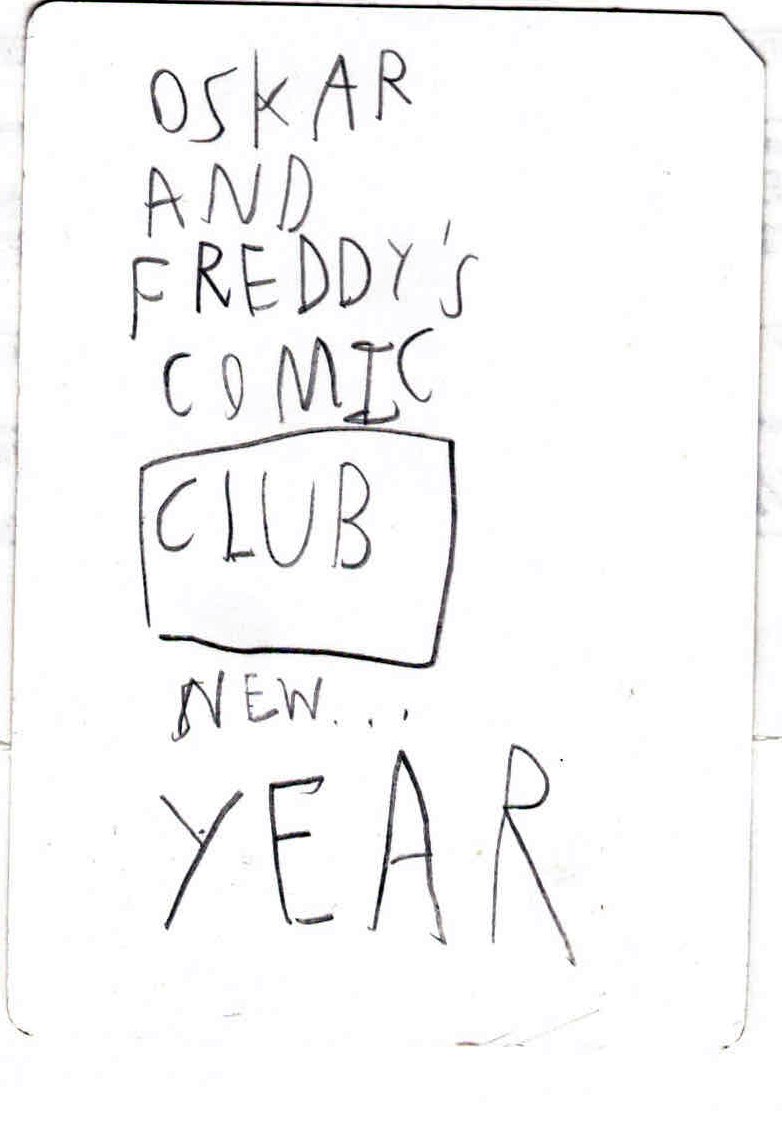 OSKAR
AND
FREDDY'S
COMIC
CLUB
NEW...
YEAR